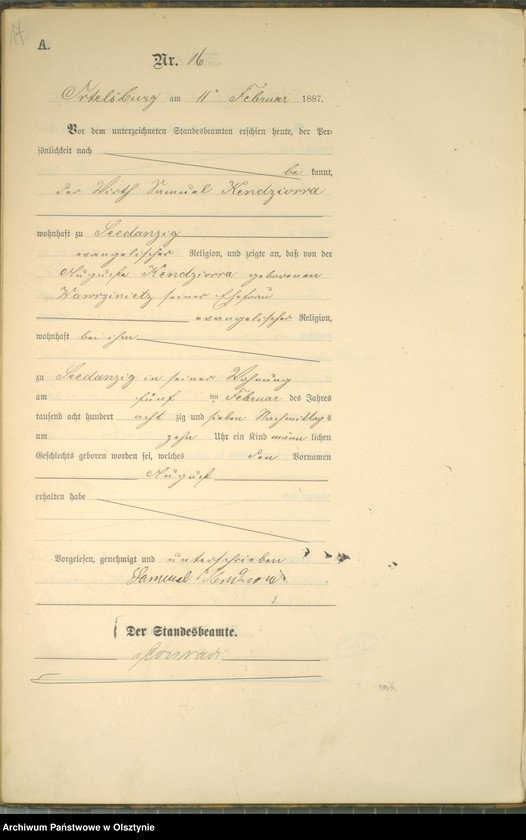 A.
Nr. 16
Ortelsburg am 11ⁿ Februar 1887.
Vor dem unterzeichneten Standesbeamten erschien heute, der Per-
sönlichkeit nach
be kannt,
der Wirth Samuel Kendziorra
wohnhaft zu Seedanzig
evangelischer Religion, und zeigte an, daß von der
Auguste Kendziorra geborenen
Wawrzinietz seiner Ehefrau
evangelischer Religion,
wohnhaft bei ihm
zu Seedanzig in seiner Wohnung
am fünf ten Februar des Jahres
tausend acht hundert acht zig und sieben Nachmittags
um zehn Uhr ein Kind männ lichen
Geschlechts geboren worden sei, welches den Vornamen
August
erhalten habe
Vorgelesen, genehmigt und unterschrieben
Samuel
Der Standesbeamte.
Conradi
Archiwum Państwowe w Olsztynie